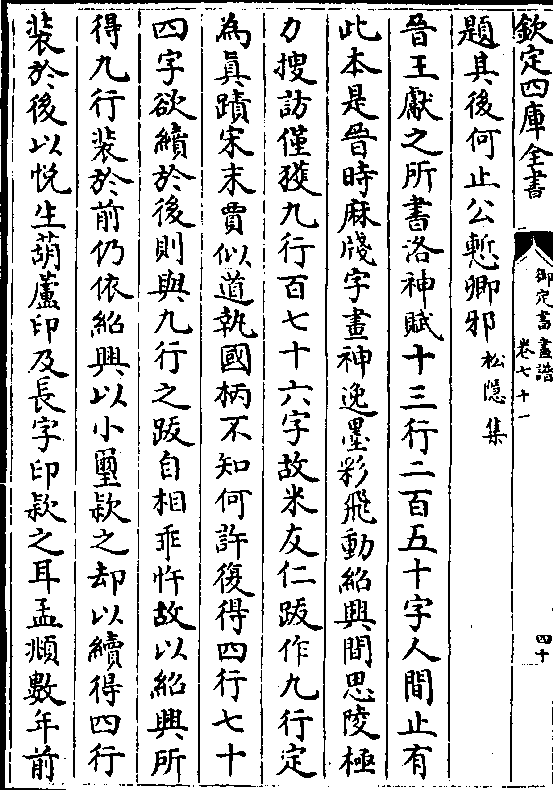 欽定四庫全書
御定書畫譜
卷七十一
四十
題其後何止公慙卿邪松隱集
晉王獻之所書洛神賦十三行二百五十字人間止有
此本是晉時麻牋字畫神逸墨彩飛動紹興間思陵極
力搜訪僅獲九行百七十六字故米友仁跋作九行定
為真蹟宋末賈似道執國柄不知何許復得四行七十
四字欲續於後則與九行之跋自相乖忤故以紹興所
得九行裝於前仍依紹興以小璽款之却以續得四行
裝於後以悅生葫蘆印及長字印款之耳孟頫數年前